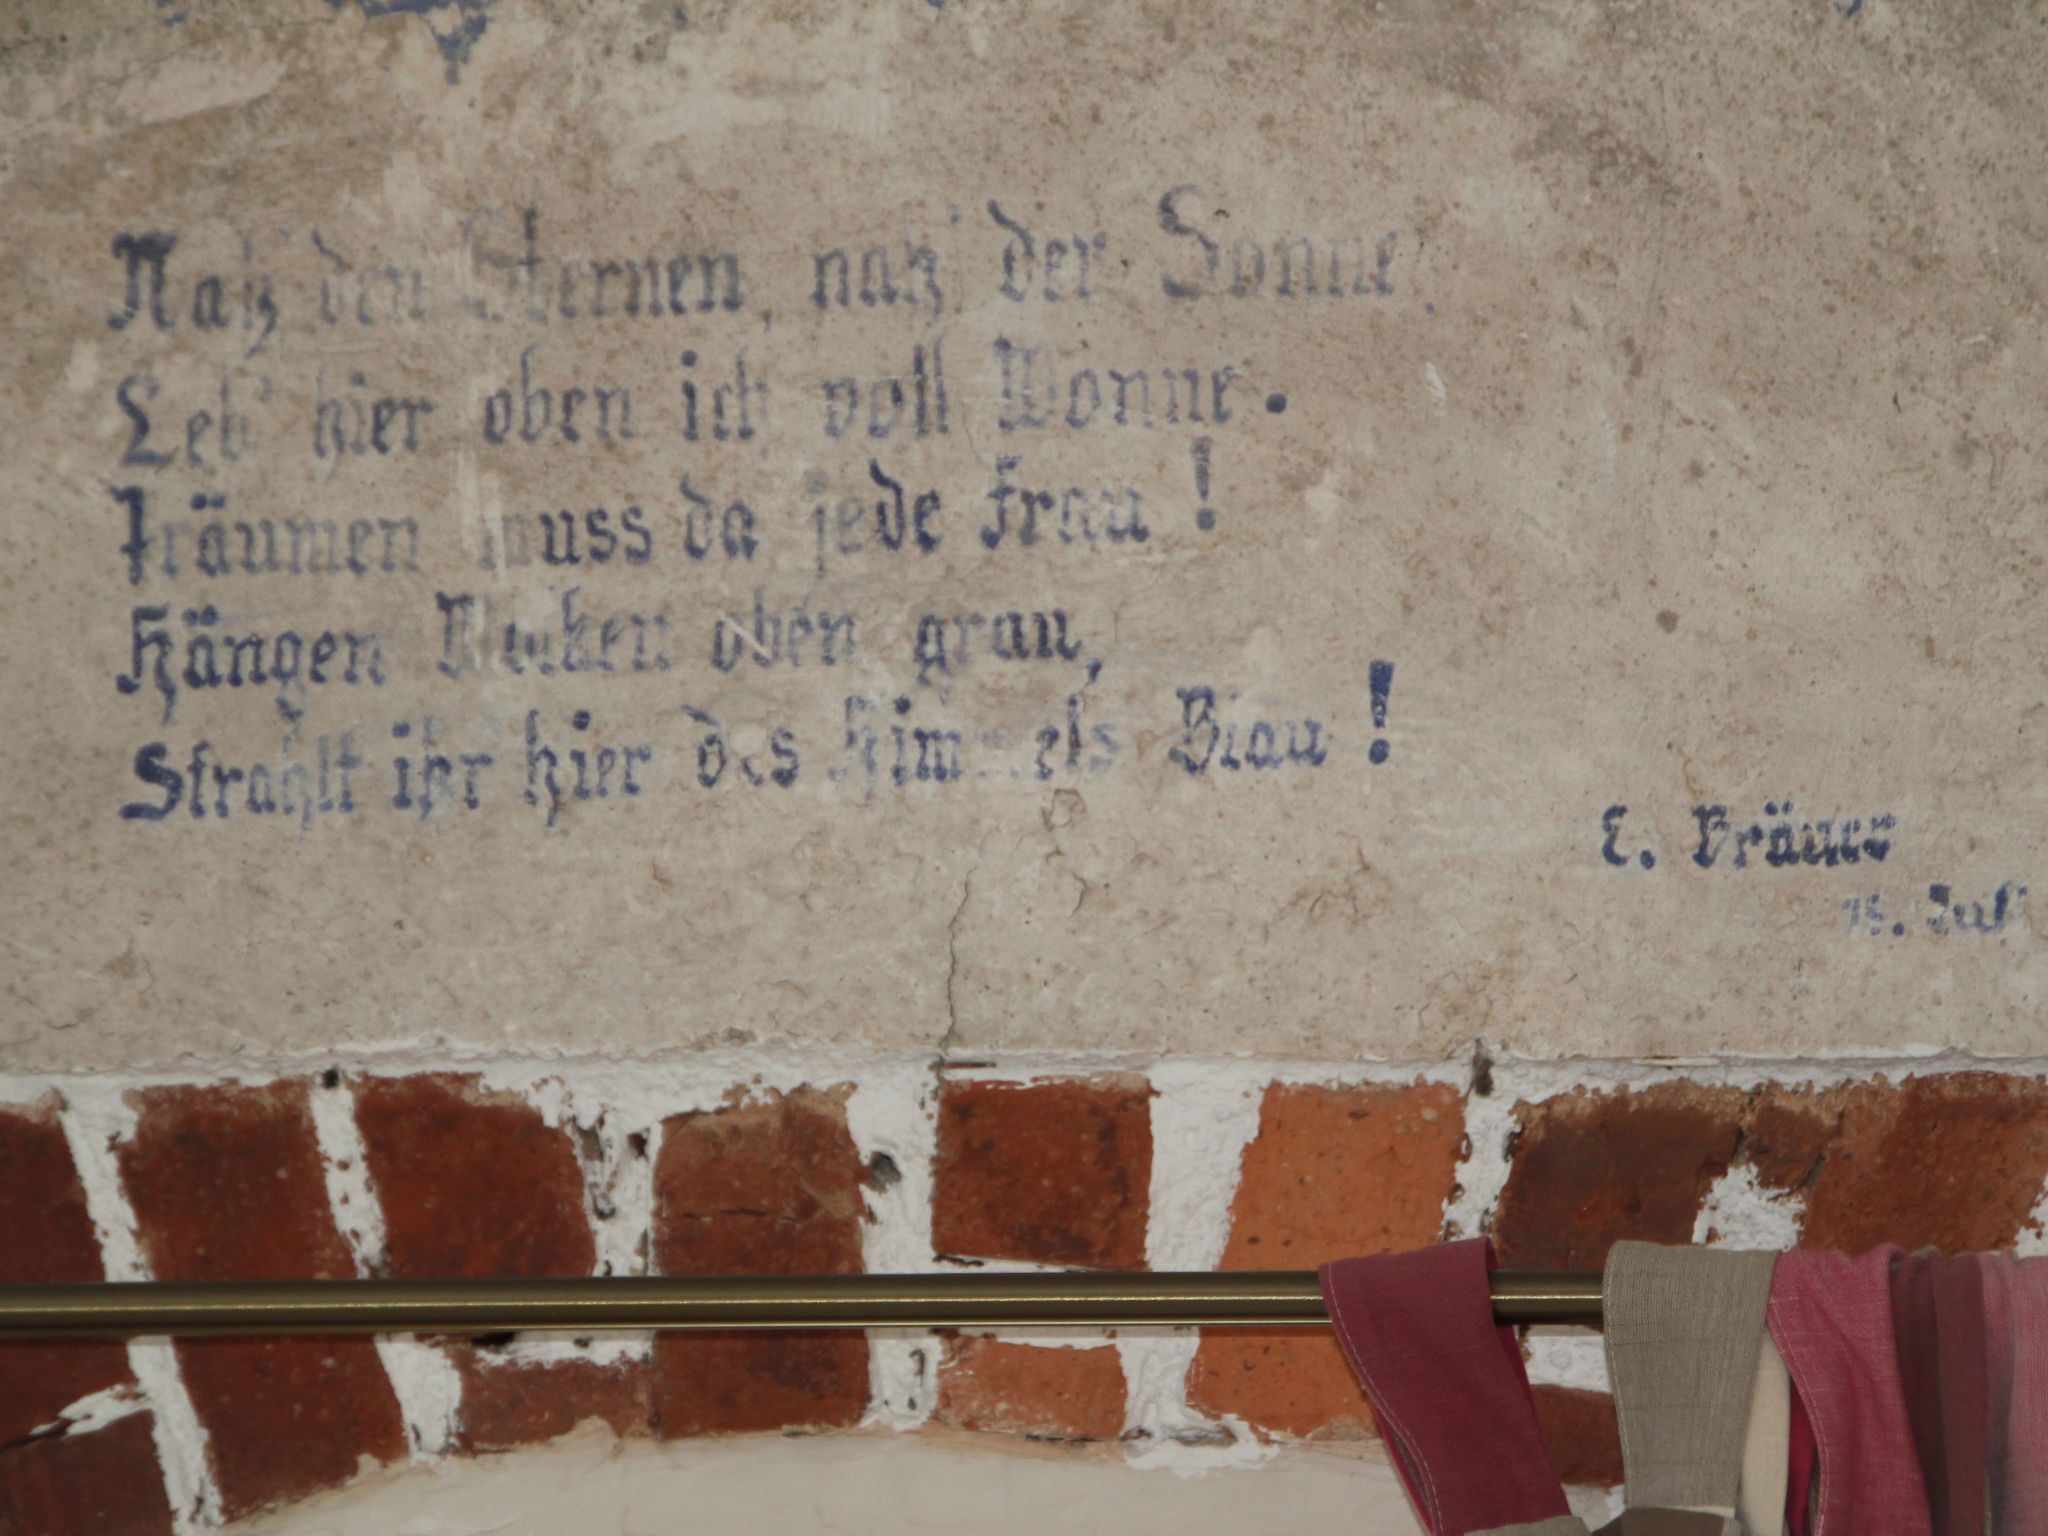 Nah' den Sternen, nah' der Sonne,
Leb' hier oben ich voll Wonne.
Träumen muss da jede Frau!
Hängen Wolken oben grau,
Strahlt ihr hier des Himmels Blau!
E. Bräuer
15. Juli